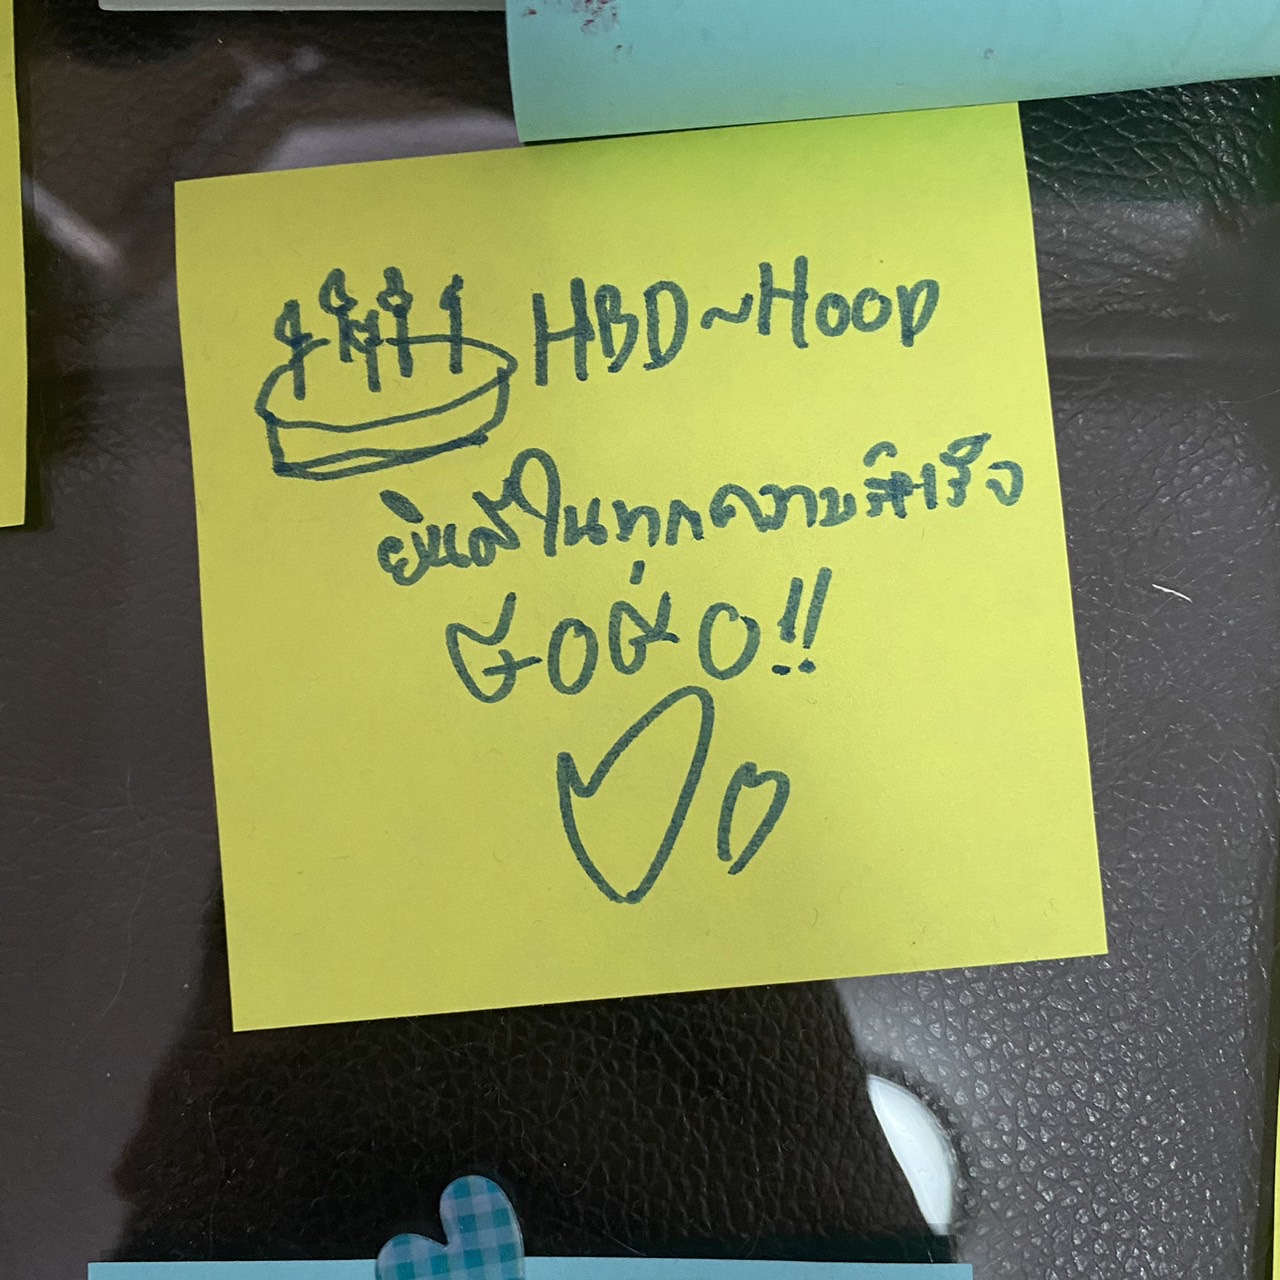 HBD~HOOD
ยินดีในทุกความสำเร็จ